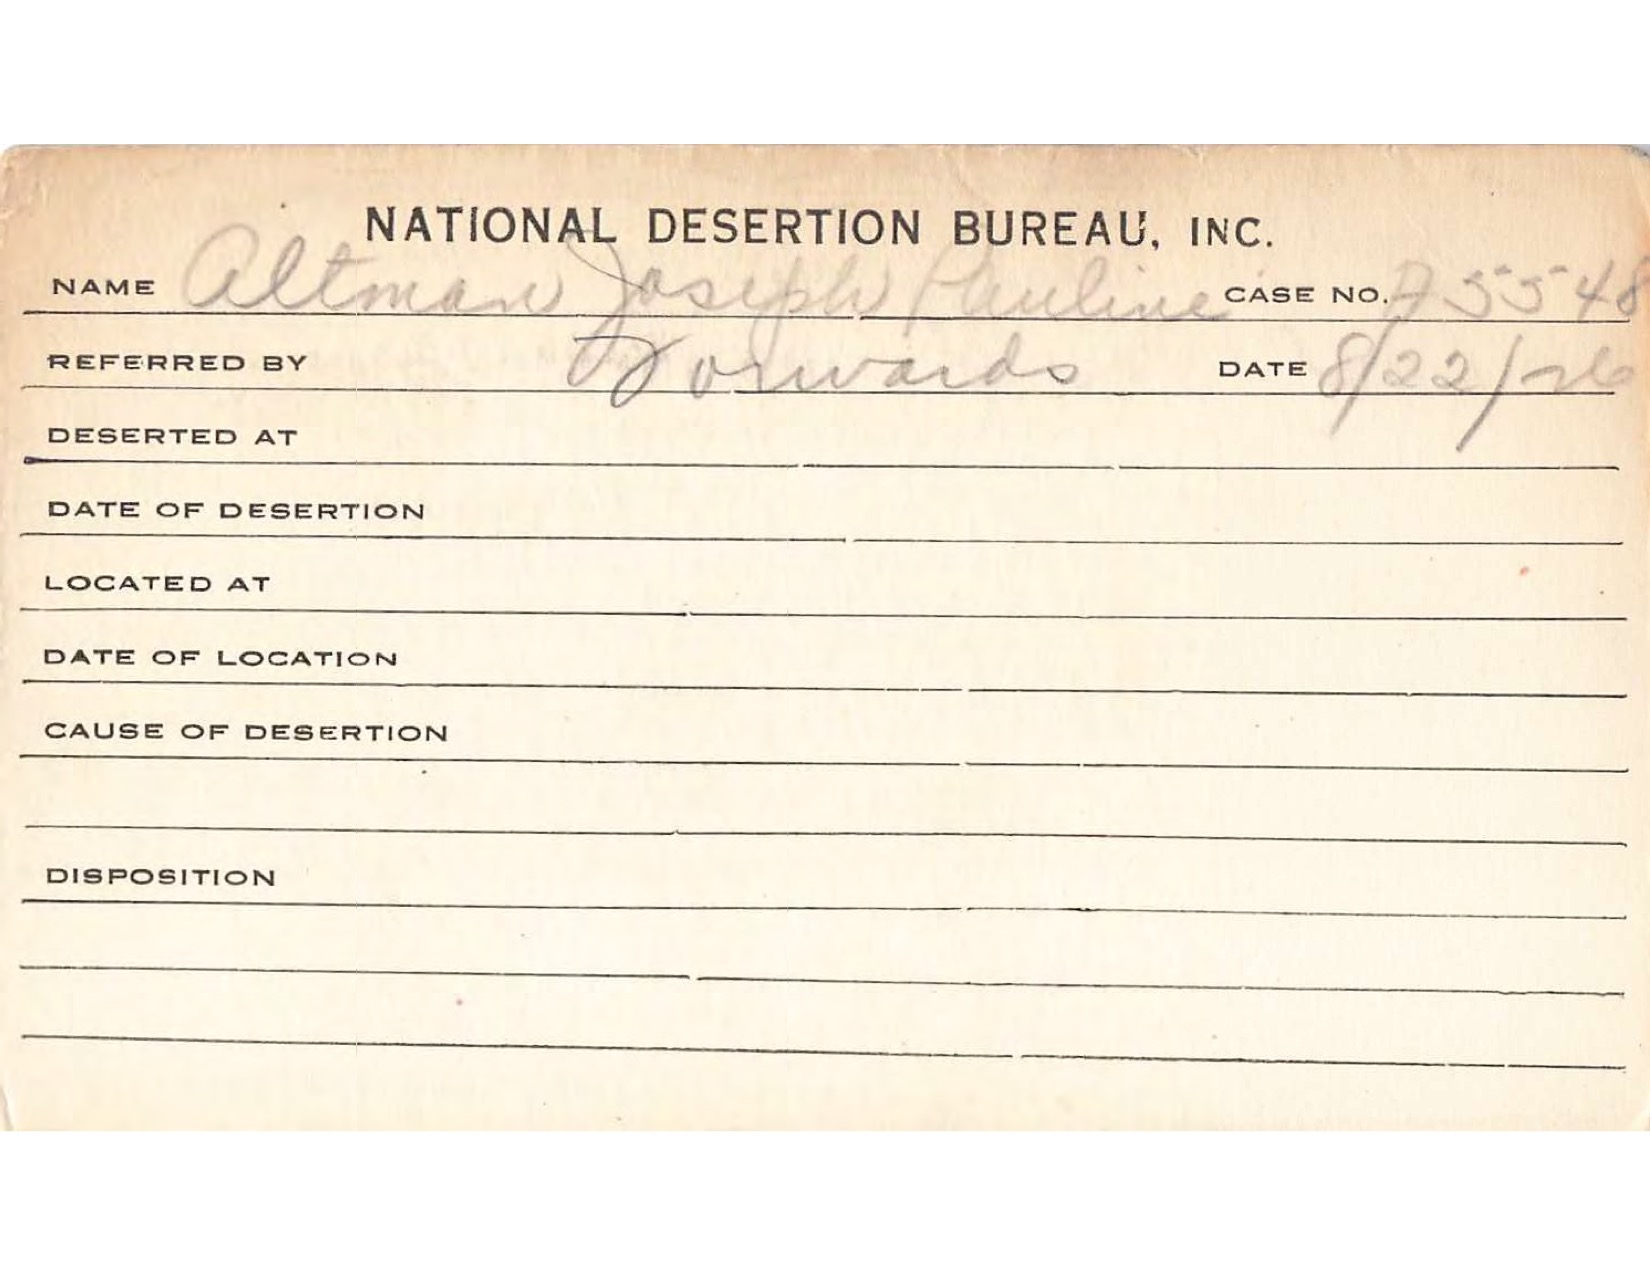 NATIONAL DESERTION BUREAU, INC.
NAME Altman Joseph Pauline CASE NO. A5548
REFERRED BY Forwards DATE 8/22/26
DESERTED AT
DATE OF DESERTION
LOCATED AT
DATE OF LOCATION
CAUSE OF DESERTION
DISPOSITION